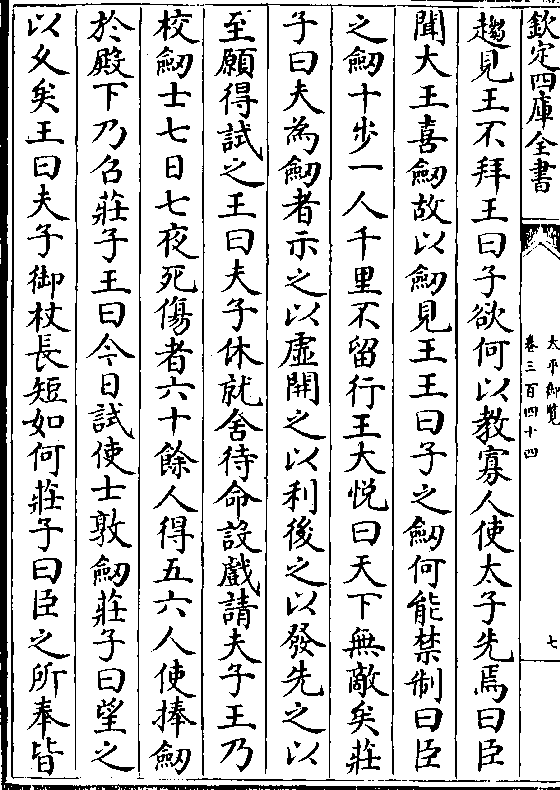 欽定四庫全書
太平御覽
卷三百四十四
七
趨見王不拜王曰子欲何以教寡人使太子先焉曰臣
聞大王喜劒故以劒見王王曰子之劒何能禁制曰臣
之劒十歩一人千里不留行王大悅曰天下無敵矣莊
子曰夫為劒者示之以虛開之以利後之以發先之以
至願得試之王曰夫子休就舍待命設戲請夫子王乃
校劒士七日七夜死傷者六十餘人得五六人使捧劒
於殿下乃召莊子王曰今日試使士敦劒莊子曰望之
以久矣王曰夫子御杖長短如何莊子曰臣之所奉皆